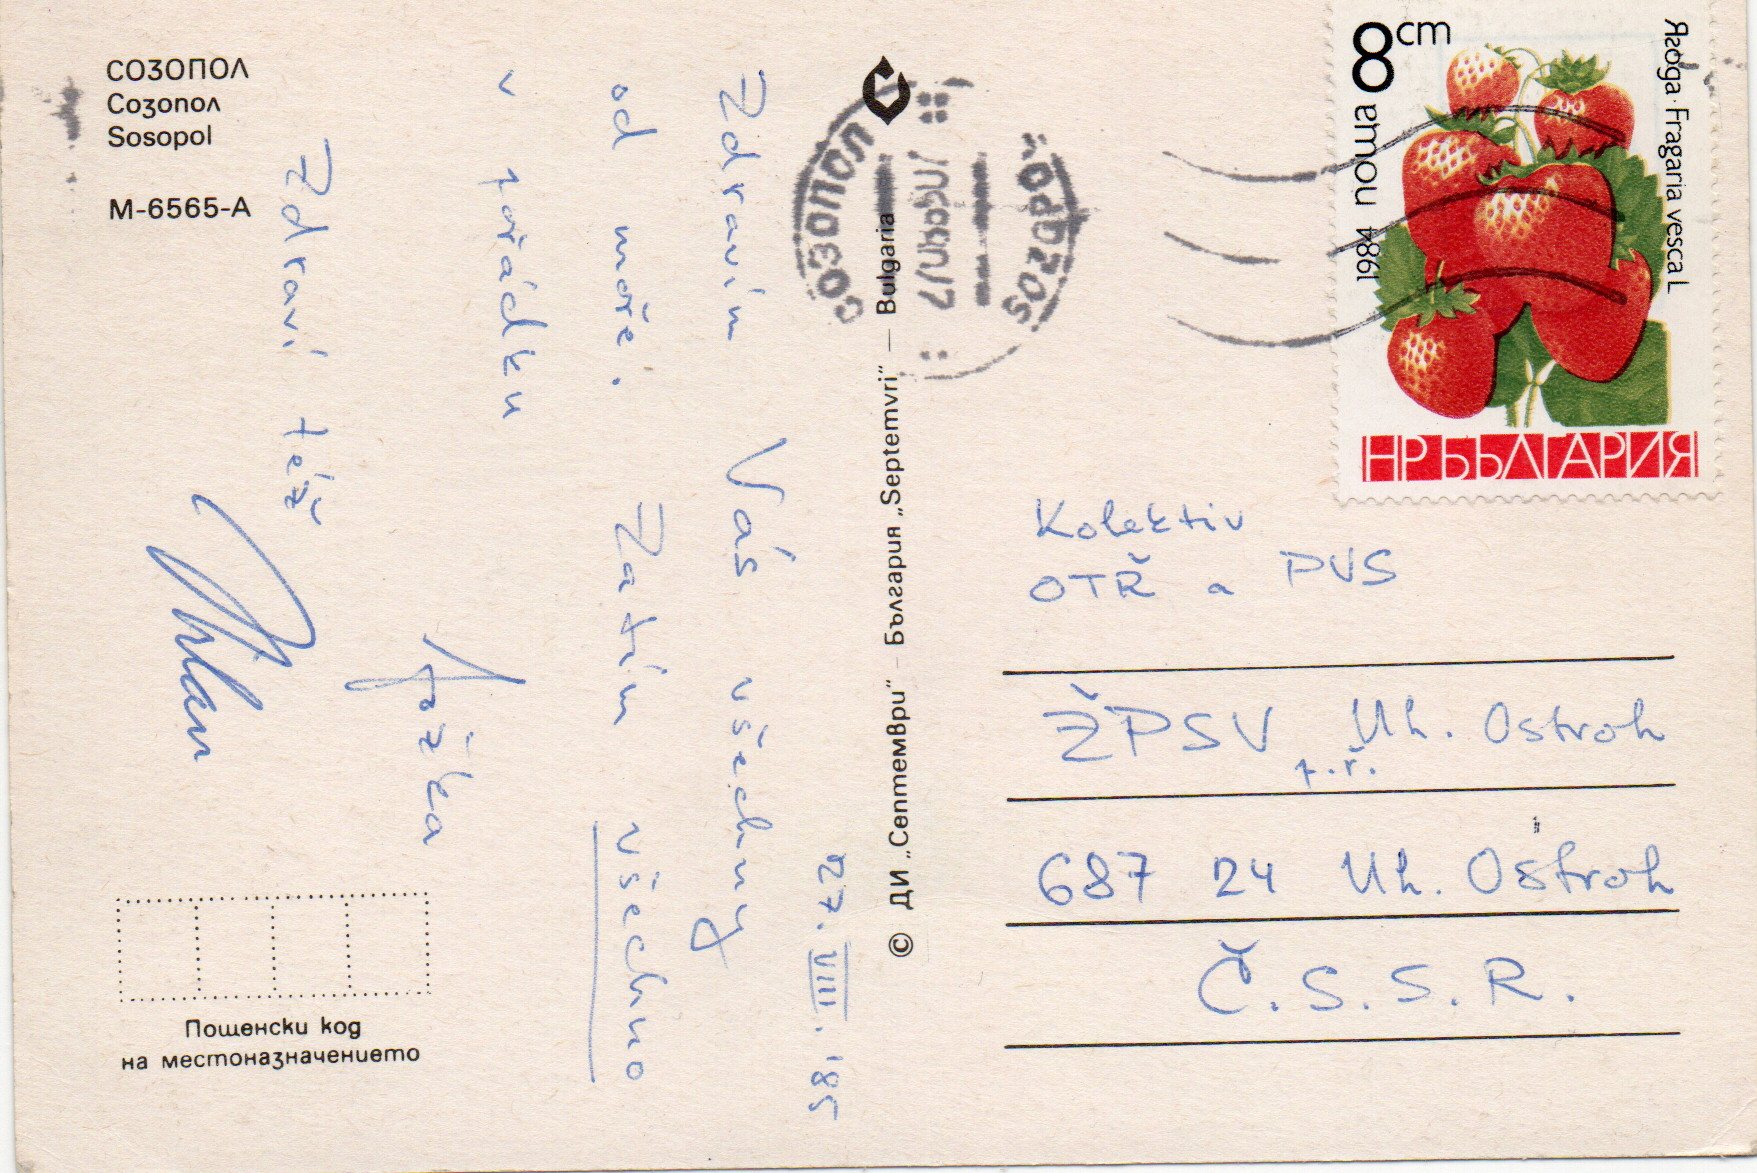 СОЗОПОЛ
Созопол
Sosopol
М-6565-А
27. VIII. '85
Zdravím Vás všechny
od moře. Zatím všechno
v pořádku
Zdraví též
Пощенски код
на местоназначението
© ДИ „Септември“ – България „Septemvri“ – Bulgaria
СОЗОПОЛ
SOZOPOL
8 cm
поща 1984
Ягода · Fragaria vesca L.
НР БЪЛГАРИЯ
Kolektiv
OTŘ a PVS
ŽPSV Uh. Ostroh
p.ř.
687 24 Uh. Ostroh
Č.S.S.R.